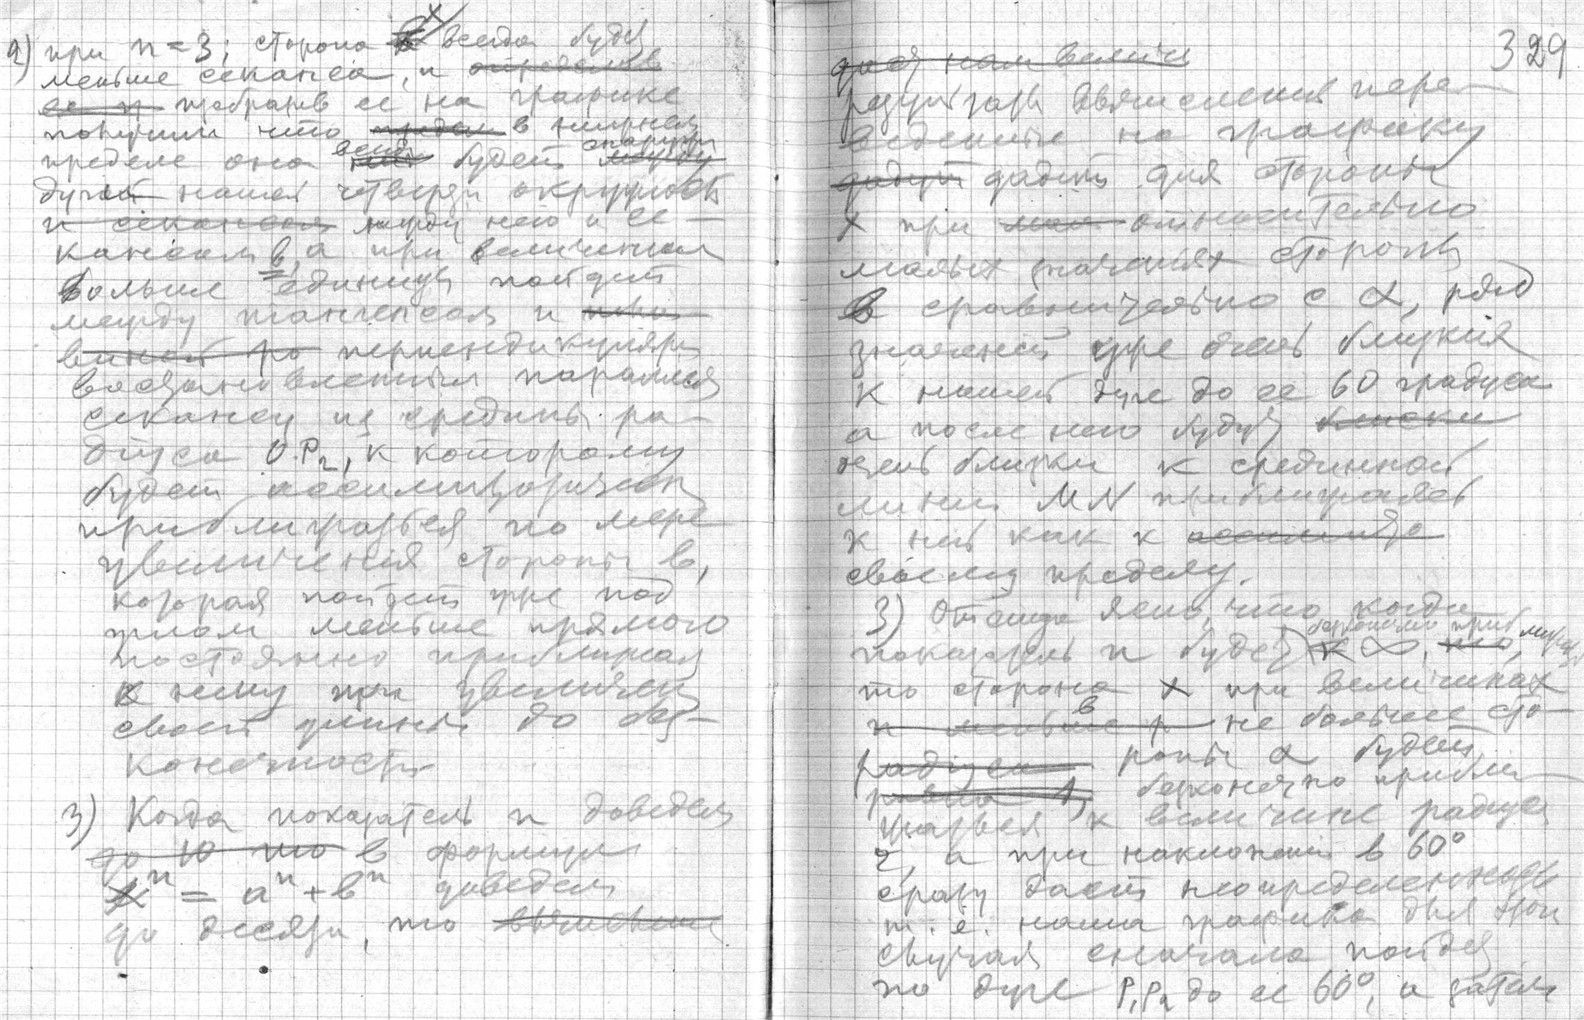 2) при n = 3; сторона x всегда будет
меньше секанса, и
на графике
получим что в нижнем
пределе она всегда будет снаружи
дуги нашей четверти окружности
между нею и се-
кансом в, а при величинах
больше единицы пойдет
между тангенсом и
перпендикуляром
восстановленным параллельно
секансу из средины ра-
диуса O.P₂, к которому
будет ассимптотически
приближаться по мере
увеличения стороны в,
которая пойдет уже под
углом меньше прямого
постоянно приближаясь
к нему при увеличении
своей длины до бес-
конечности
3) Когда показатель n доведем
до 10 то в формуле
xⁿ = aⁿ + вⁿ доведем
до десяти, то
329
даст нам величи
результаты вычисления пере-
веденные на графику
дадут дадут для стороны
x при относительно
малых значениях стороны
в сравнительно с α, ряд
значений уже очень близкий
к нашей дуге до ее 60 градуса
а после него будут близки
очень близки к срединной
линии MN приближаясь
к ней как к
своему пределу.
3) Отсюда ясно, что когда
показатель n будет бесконечно приб
к ∞,
то сторона x при величинах
в не больше сто-
радиуса роны α будет
равна 1, бесконечно прибли-
жаться к величине радиуса
r, а при наклоне в 60°
сразу даст неопределенность
т. е. наша графика для этого
случая сначала пойдет
по дуге P₁P₂ до ее 60°, а затем